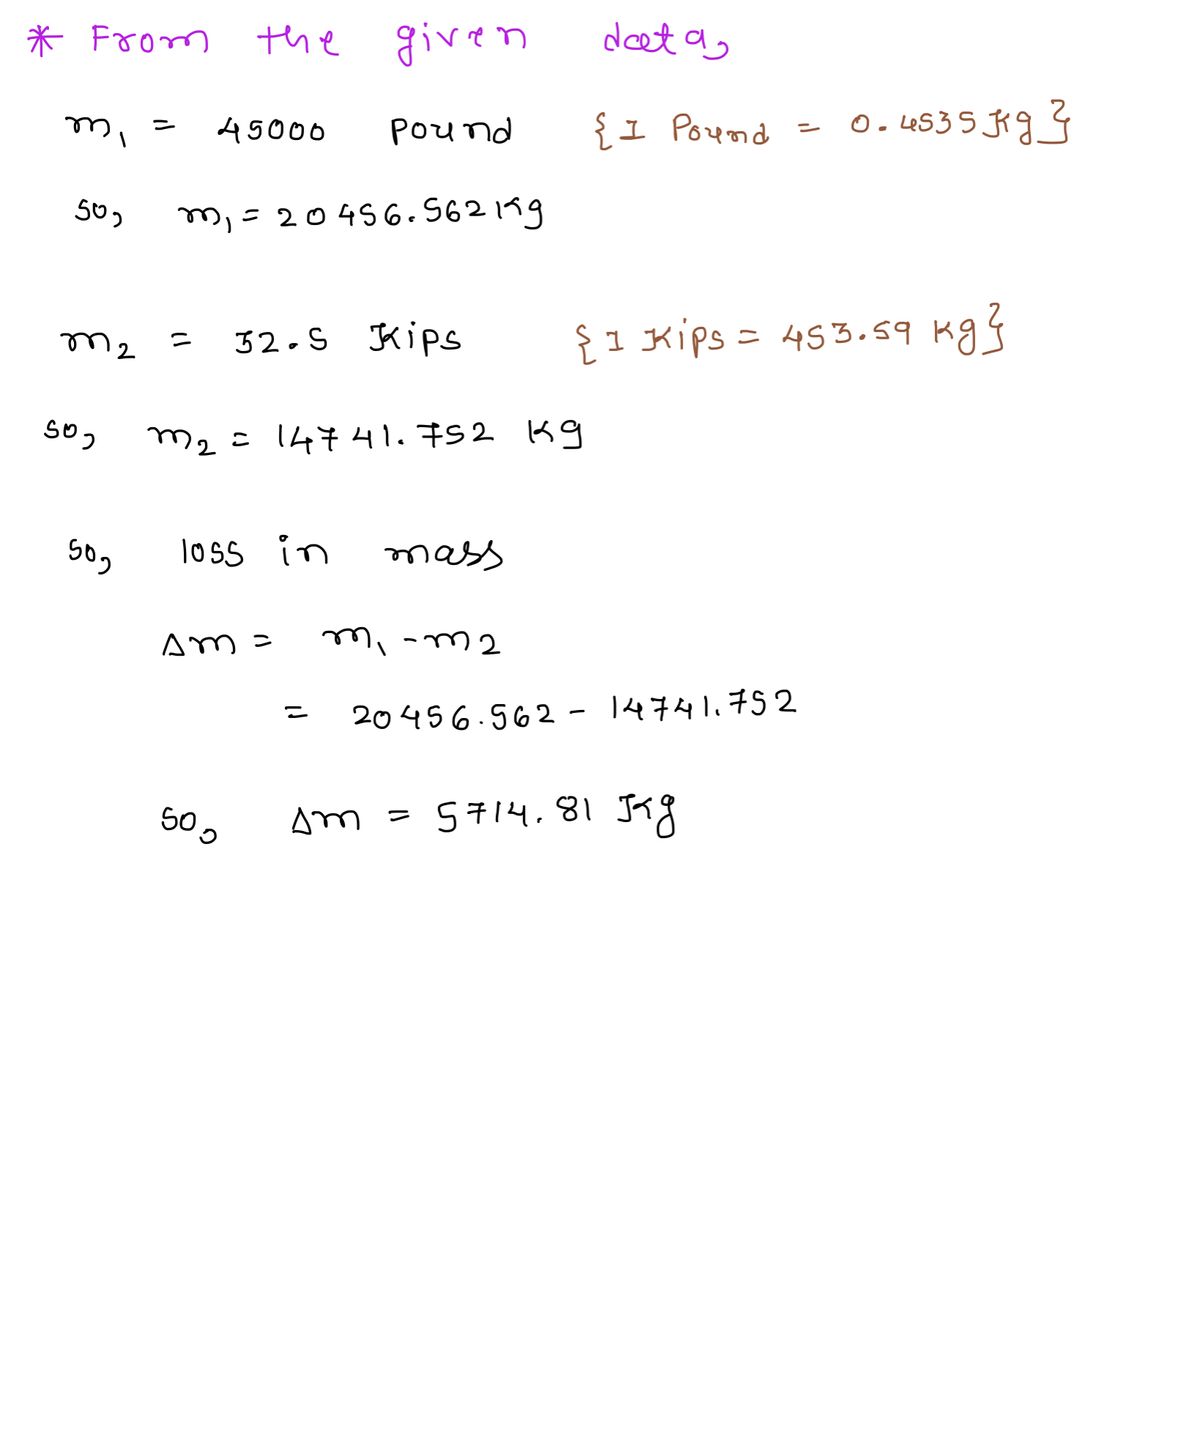 * From the given data,
m₁ = 45000 pound {1 Pound = 0.4535 Kg}
so, m₁ = 20456.562 Kg
m₂ = 32.5 Kips {1 Kips = 453.59 Kg}
so, m₂ = 14741.752 Kg
so, loss in mass
Δm = m₁ - m₂
= 20456.562 - 14741.752
so, Δm = 5714.81 Kg